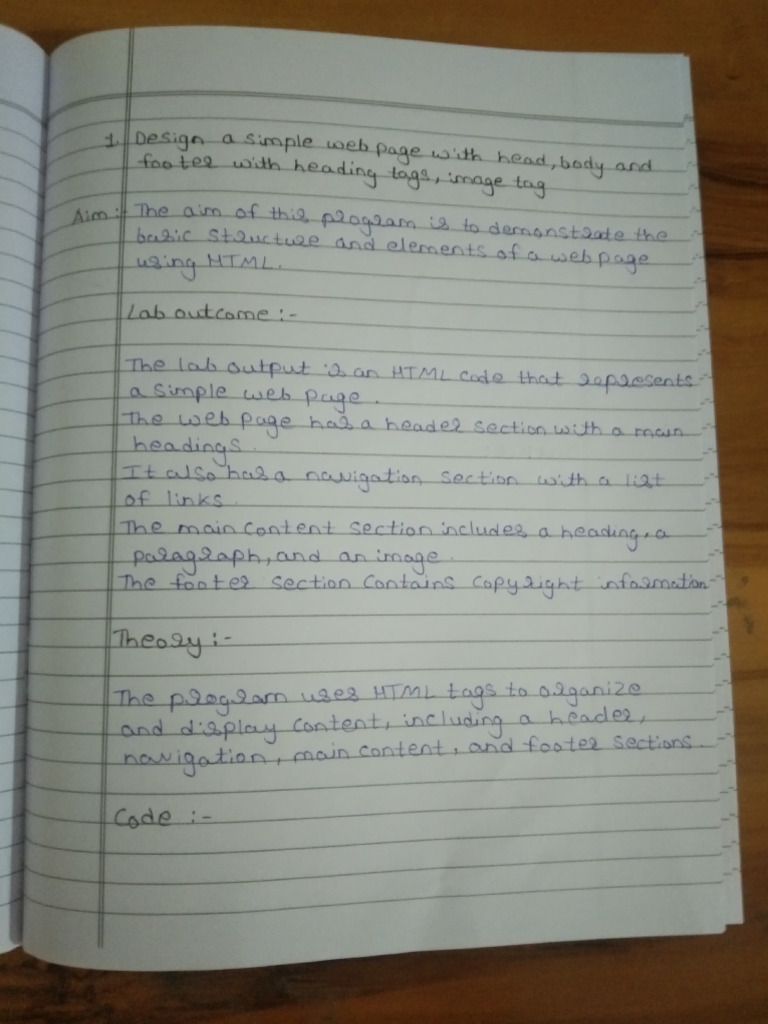 1. Design a simple web page with head, body and
footer with heading tags, image tag
Aim :- The aim of this program is to demonstrate the
basic structure and elements of a web page
using HTML.
Lab outcome :-
The lab output is an HTML code that represents
a simple web page.
The web page has a header section with a main
headings.
It also has a navigation section with a list
of links.
The main content section includes a heading, a
paragraph, and an image.
The footer section contains copyright information
Theory :-
The program uses HTML tags to organize
and display content, including a header,
navigation, main content, and footer sections.
Code :-